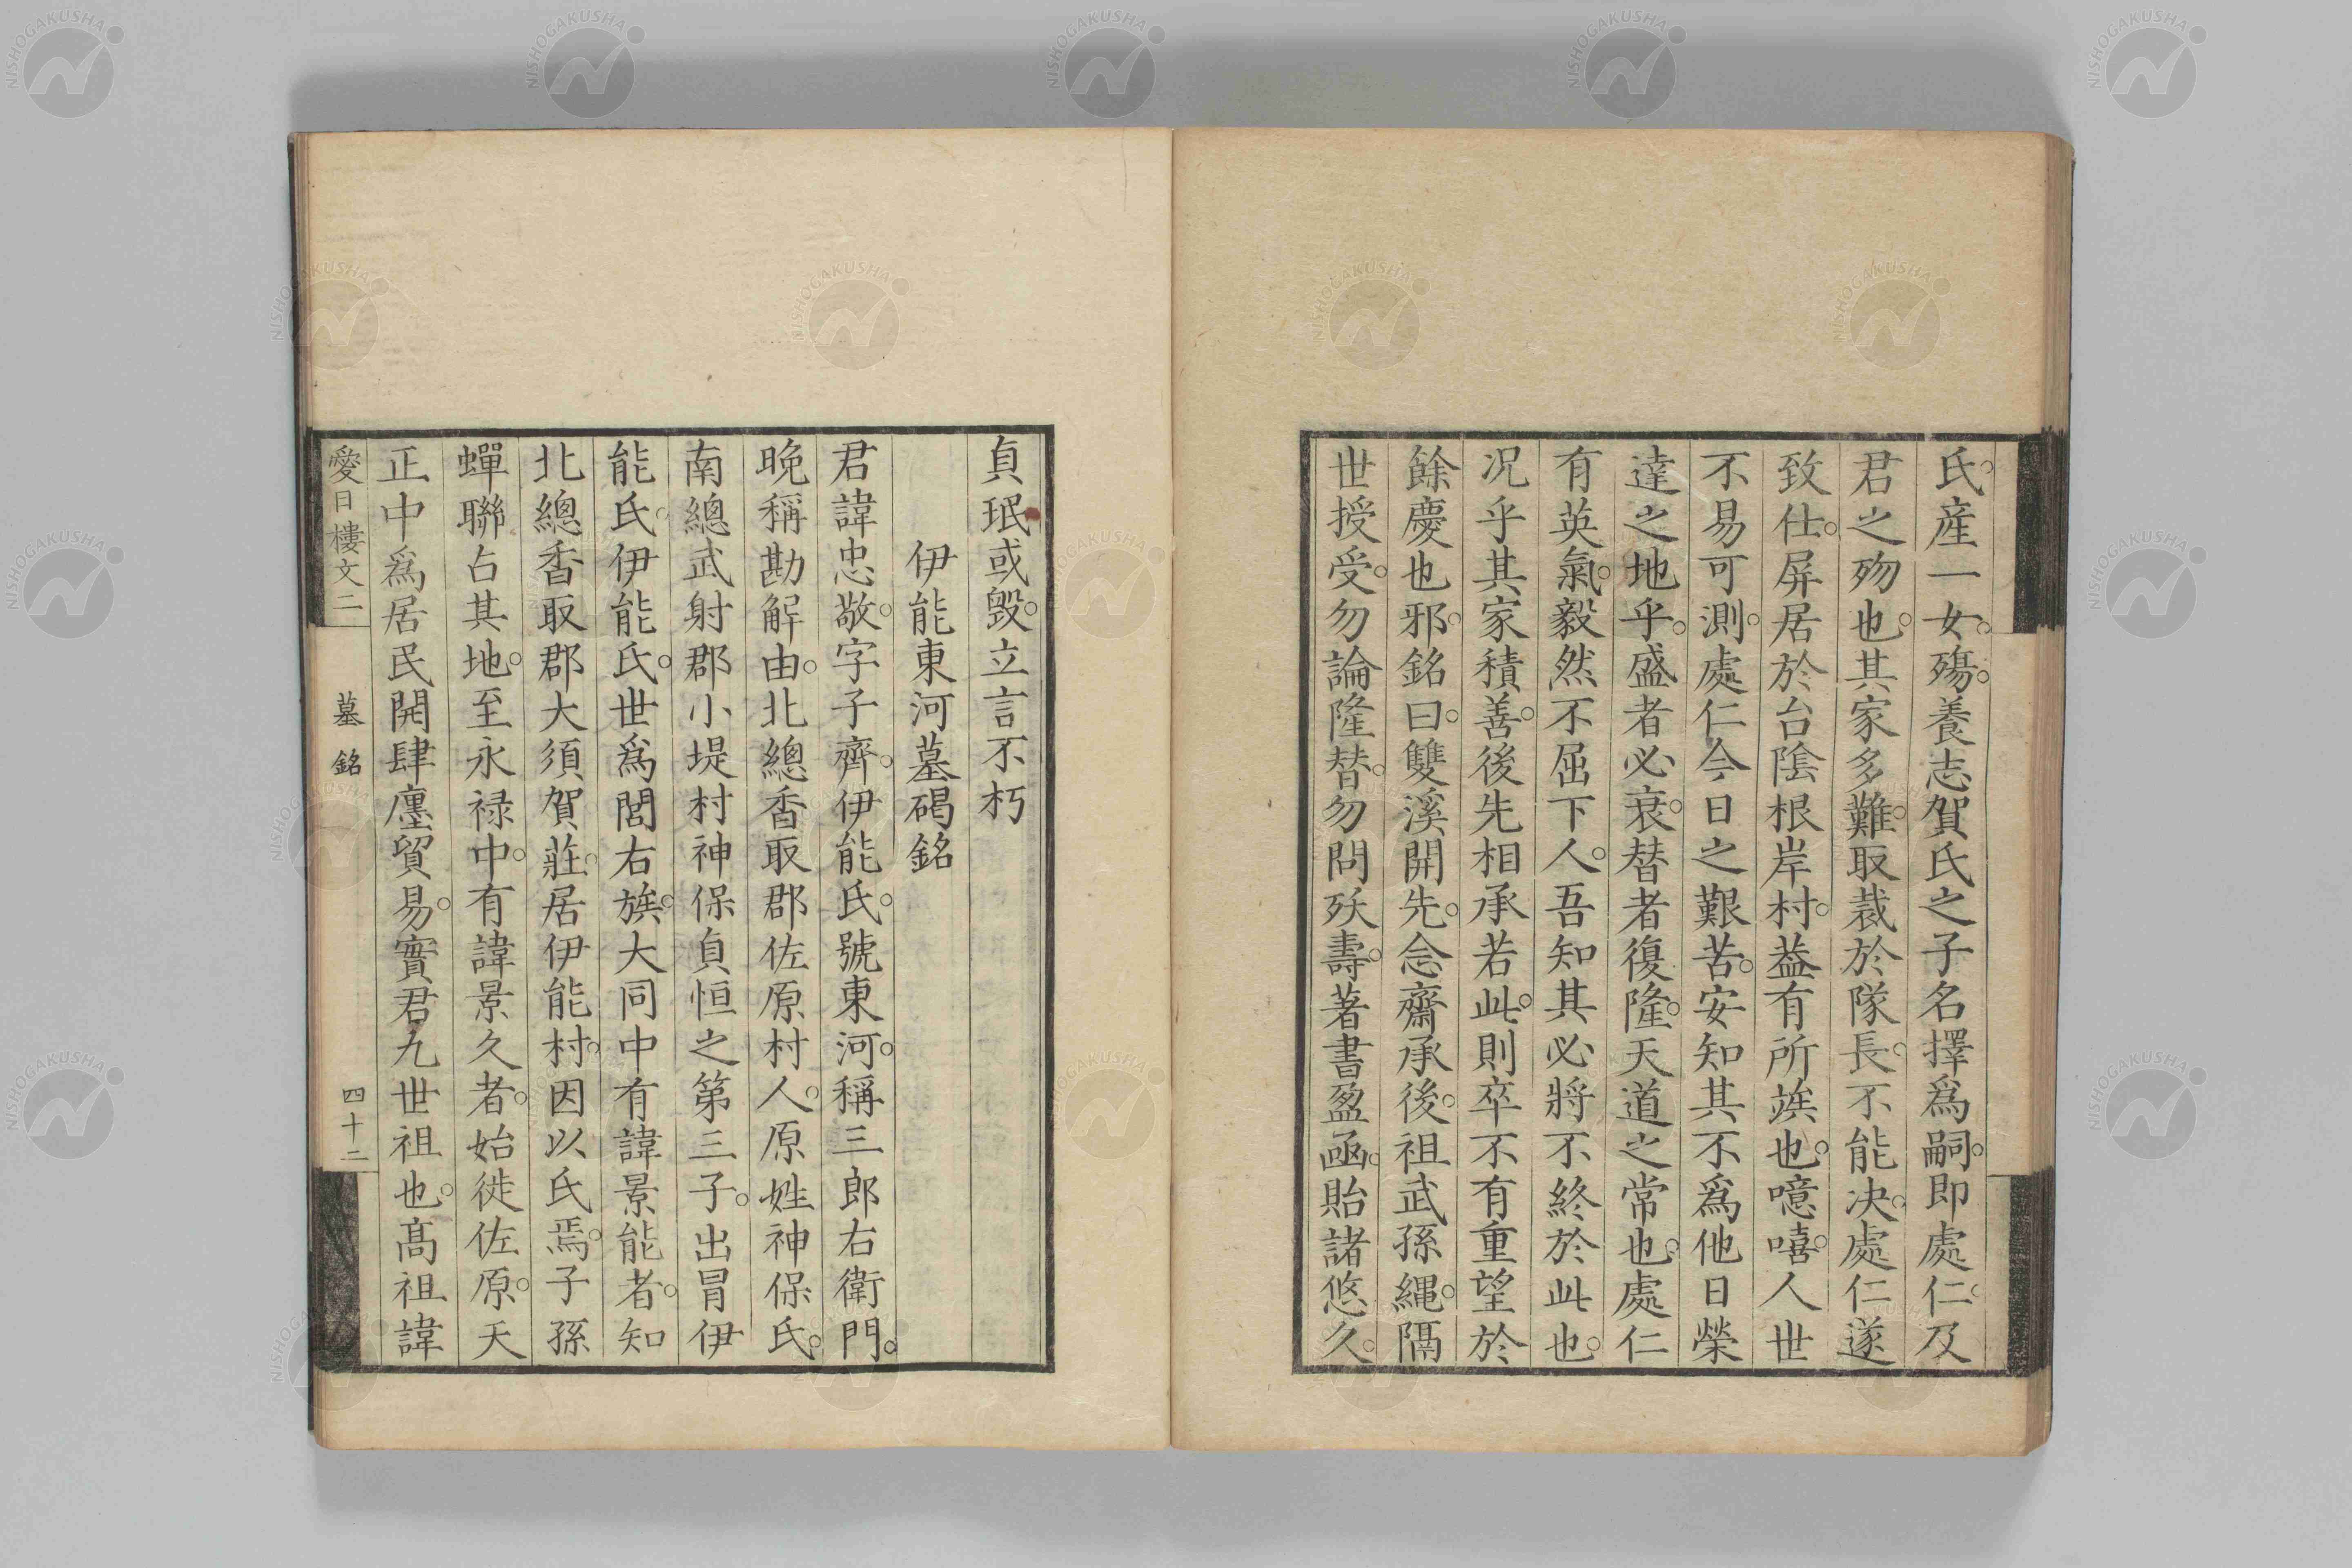 氏。産一女。殤。養志賀氏之子名擇爲嗣。即處仁。及
君之歾也。其家多難。取裁於隊長。不能决。處仁遂
致仕。屏居於台陰根岸村。葢有所竢也。噫嘻。人世
不易可測。處仁今日之艱苦。安知其不爲他日榮
達之地乎。盛者必衰。替者復隆。天道之常也。處仁
有英氣。毅然不屈下人。吾知其必將不終於此也。
况乎其家積善。後先相承若此。則卒不有重望於
餘慶也邪。銘曰。雙溪開先。念齋承後。祖武孫繩。隔
世授受。勿論隆替。勿問殀壽。著書盈凾。貽諸悠久。
貞珉或毀。立言不朽
伊能東河墓碣銘
君諱忠敬。字子齊。伊能氏。號東河。稱三郎右衛門。
晚稱勘解由。北總香取郡佐原村人。原姓神保氏。
南總武射郡小堤村神保貞恒之第三子。出冒伊
能氏。伊能氏。世爲閭右族。大同中有諱景能者。知
北總香取郡大須賀莊。居伊能村。因以氏焉。子孫
蟬聯占其地。至永禄中。有諱景久者。始徙佐原。天
正中爲居民開肆廛貿易。實君九世祖也。高祖諱
愛日樓文二
墓銘
四十二
NISHOGAKUSHA